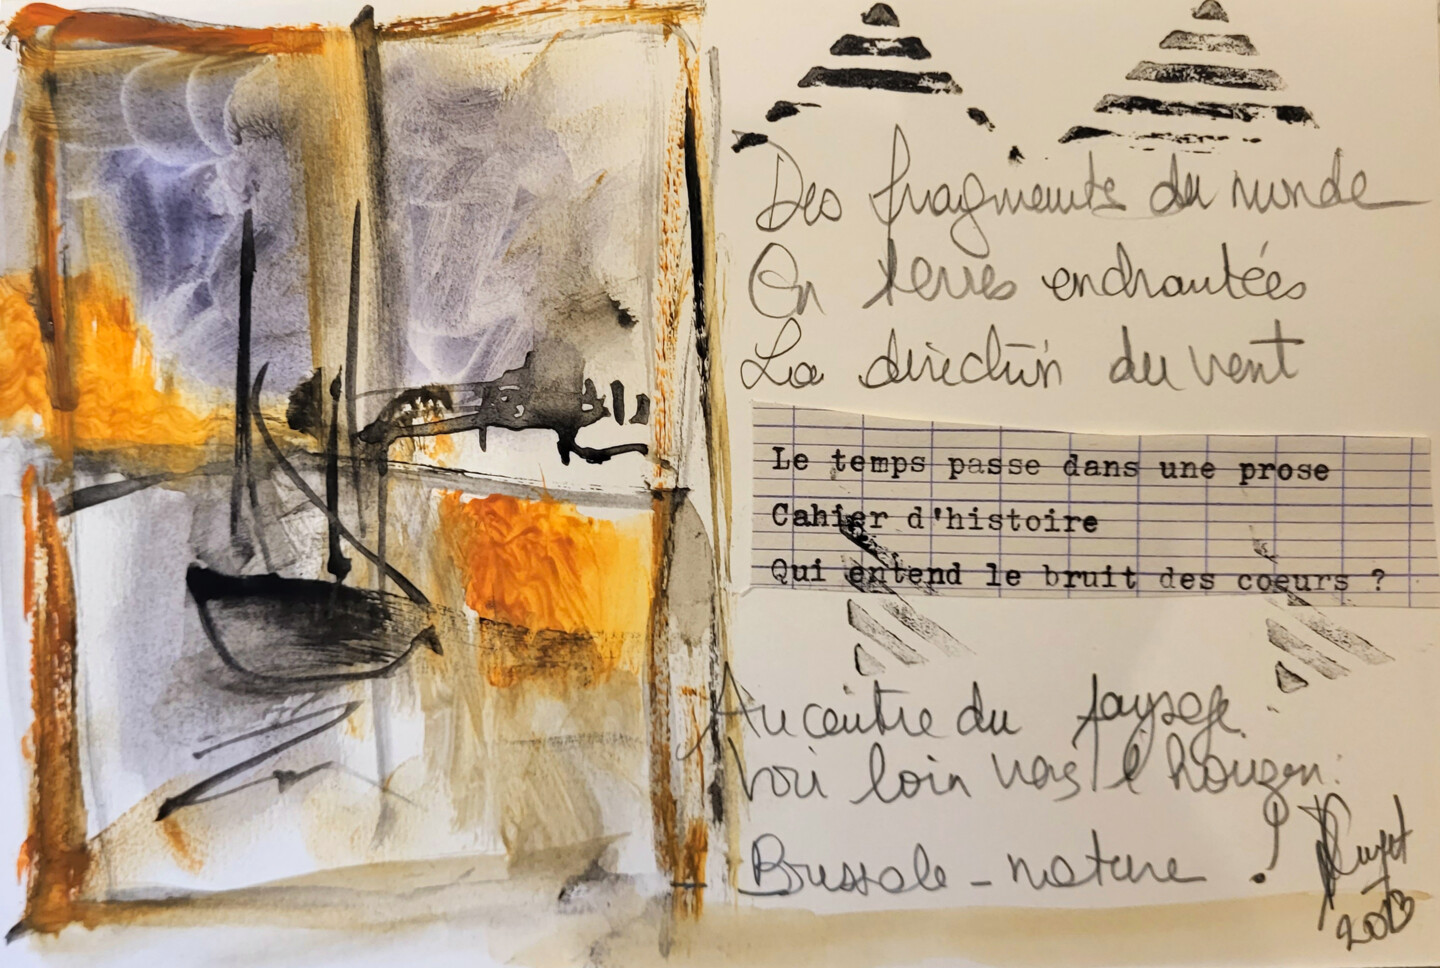 Des fragments du monde
En terres enchantées
La direction du vent
Le temps passe dans une prose
Cahier d'histoire
Qui entend le bruit des coeurs ?
Au centre du paysage
Voir loin vers l'horizon
- nature !